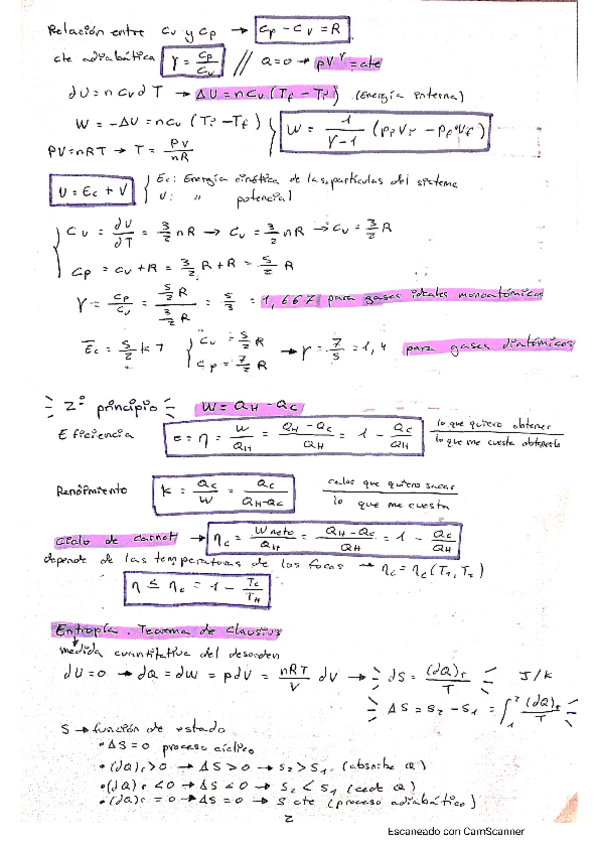 Relación entre Cv y Cp → Cp - Cv = R
cte adiabática γ = Cp/Cv // Q=0 → pV^γ = cte
dU = nCvdT → ΔU = nCv(Tf - Ti) (Energía interna)
W = -ΔU = nCv(Ti - Tf) } W = 1/(γ-1) (PiVi - PfVf)
PV=nRT → T = PV/nR
U = Ec + V { Ec: Energía cinética de las partículas del sistema
U: " potencial
Cv = dU/dT = 3/2 nR → Cv = 3/2 nR → Cv = 3/2 R
Cp = Cv + R = 3/2 R + R = 5/2 R
γ = Cp/Cv = (5/2 R)/(3/2 R) = 5/3 = 1,667 para gases ideales monoatómicos
Ec = 5/2 kT { Cv = 5/2 R → γ = 7/5 = 1,4 para gases diatómicos
Cp = 7/2 R
2º principio W = QH - QC
Eficiencia e = η = W/QH = (QH - QC)/QH = 1 - QC/QH lo que quiero obtener / lo que me cuesta obtenerlo
Rendimiento k = QC/W = QC/(QH-QC) calor que quiero sacar / lo que me cuesta
Ciclo de Carnot → ηc = Wneto/QH = (QH - QC)/QH = 1 - QC/QH
depende de las temperaturas de los focos → ηc = ηc(T1, T2)
η ≤ ηc = 1 - Tc/TH
Entropía. Teorema de Clausius
medida cuantitativa del desorden
dU=0 → dQ = dW = pdV = nRT/V dV → dS = (dQ)r/T J/K
ΔS = S2 - S1 = ∫₁² (dQ)r/T
S → función de estado
• ΔS = 0 proceso cíclico
• (dQ)r > 0 → ΔS > 0 → S2 > S1 (absorbe Q)
• (dQ)r < 0 → ΔS < 0 → S2 < S1 (cede Q)
• (dQ)r = 0 → ΔS = 0 → S cte (proceso adiabático)
2
Escaneado con CamScanner